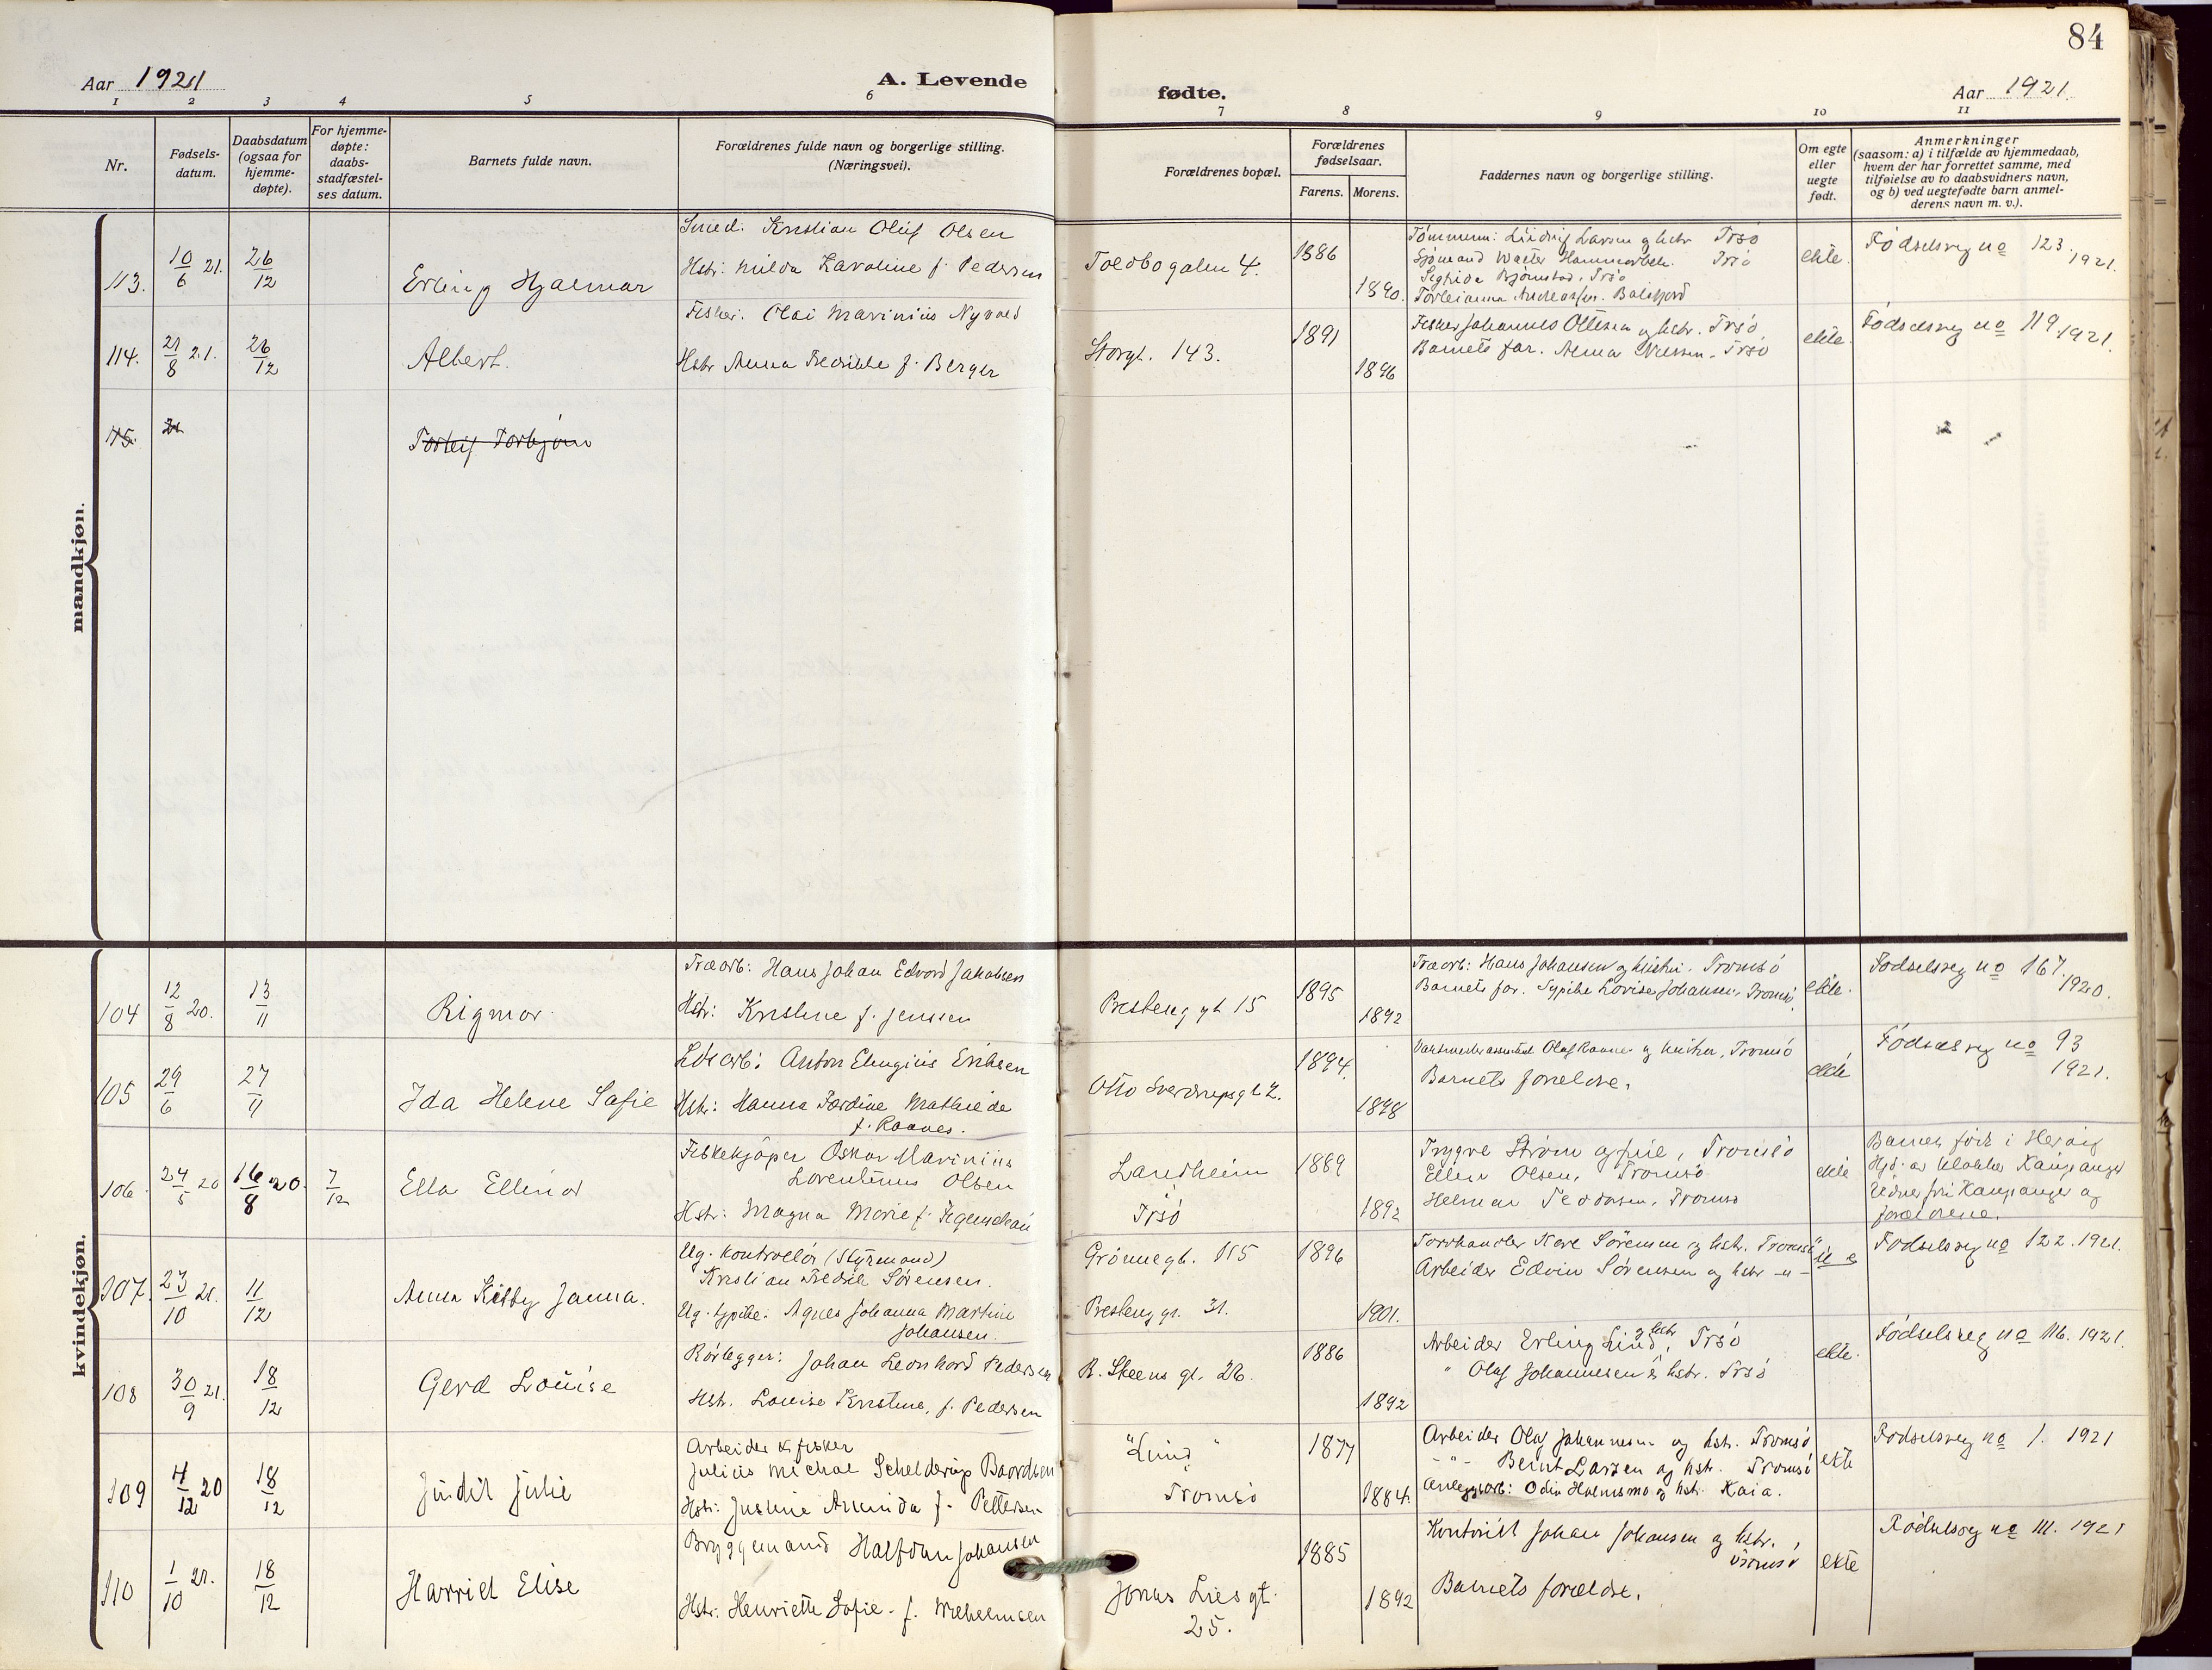 84
Aar 1921
A. Levende
fødte.
Aar 1921.
1 2 3 4 5 6 7 8 9 10 11
Nr.
Fødsels-
datum.
Daabsdatum
(ogsaa for
hjemme-
døpte).
For hjemme-
døpte:
daabs-
stadfæstel-
ses datum.
Barnets fulde navn.
Forældrenes fulde navn og borgerlige stilling.
(Næringsvei).
Forældrenes bopæl.
Forældrenes
fødselsaar.
Farens. Morens.
Faddernes navn og borgerlige stilling.
Om egte
eller
uegte
født.
Anmerkninger
(saasom: a) i tilfælde av hjemmedaab,
hvem der har forrettet samme, med
tilføielse av to daabsvidners navn,
og b) ved uegtefødte barn anmel-
derens navn m. v.).
mandkjøn.
113. 10/6 21. 26/12 Erling Hjalmar
Smed: Kristian Oluf Olsen
Hstr: Milda Karoline f. Pedersen
Toldbogaten 4. 1886 1890.
Tømmerm: Ludvig Larsen og hstr Trsø
Sjømand Walter Hammerbek. Trsø
Bjørnstad, Trsø
Andreassen. Balsfjord
ekte.
Fødselsreg no 123.
1921.
114. 21/8 21. 26/12 Albert.
Fisker. Olai Marinius Nyvold
Hstr Anna Fredrikke f. Berger
Storgt. 143. 1891 1896
Fisker Johannes Ottesen og hstr. Trsø
Barnets far. Alma Nilssen. Trsø
ekte.
Fødselsreg no 119.
1921.
115. 21 Torleif Torbjørn
kvindekjøn.
104 12/8 20. 13/11 Rigmor
Træarb: Hans Johan Edvard Jakobsen
Hstr: Kristine f. Jenssen
Prestenggt 15 1895 1892
Træarb: Hans Johansen og hustru. Tromsø
Barnets far. Lovise Johansen, Tromsø.
ekte.
Fødselsreg no 167.
1920.
105 29/6 27/11 Ida Helene Sofie
Løsarb: Anton Elingius Eriksen
Hstr: Hanna Jørdine Mathilde
f. Raanes.
Otto Sverdrupsgt 2. 1894. 1898
Olaf Raanes og hustru, Tromsø
Barnets forældre.
ekte
Fødselsreg no 93
1921.
106. 24/5 20 16/8 20. 7/12 Ella Ellinor
Fiskekjøper Oskar Marinius
Lorentinus Olsen
Hstr: Magna Marie f.
Landheim
Trsø
1889 1892
Trygve Strøm og frue, Tromsø
Ellen Olsen, Tromsø
Helmar Pedersen, Tromsø
ekte
Barnet født i
Hjd. av klokker Kaupanger
Vidner fru Kaupanger og
forældrene.
107. 23/10 21. 11/12 Anna Kitty Janna.
Ug. kontrollør (Styrmand)
Kristian Fredrik Sørensen.
Ug. Agnes Johanna Martine
Johansen.
Grønnegt. 115
Prestenggt. 31.
1896 1901.
Torvhandler Kore Sørensen og hstr. Tromsø
Arbeider Edvin Sørensen og hstr -"-
Fødselsreg no 122. 1921.
108 30/9 21. 18/12 Gerd Louise
Rørlegger: Johan Leonhard Pedersen
Hstr. Louise Kristine, f. Pedersen
B. Skeens gt. 26. 1886 1892
Arbeider Erling Lind, og hstr Trsø
" Olaf Johannesen & hstr. Trsø
ekte.
Fødselsreg no 116. 1921.
109 4/12 20 18/12 Judit Julie
Arbeider & fisker
Julius Michal Schelderup Baardsen
Hstr: Justine Arenida f. Pettersen
"Lund"
Tromsø
1877 1884.
Arbeider Olaf Johannesen og hstr. Tromsø
-"- Bernt Larsen og hstr. Tromsø
Anleggsarb: Odin Holmsmo og hstr. Kaia.
ekte
Fødselsreg no 1. 1921
110 1/10 21. 18/12 Harriet Elise
Bryggemand Halfdan Johansen
Hstr: Henriette Sofie. f. Wilhelmsen
Jonas Lies gt.
25.
1885 1892
Kontorist Johan Johansen og hstr.,
Tromsø
Barnets forældre.
ekte
Fødselsreg no 111. 1921